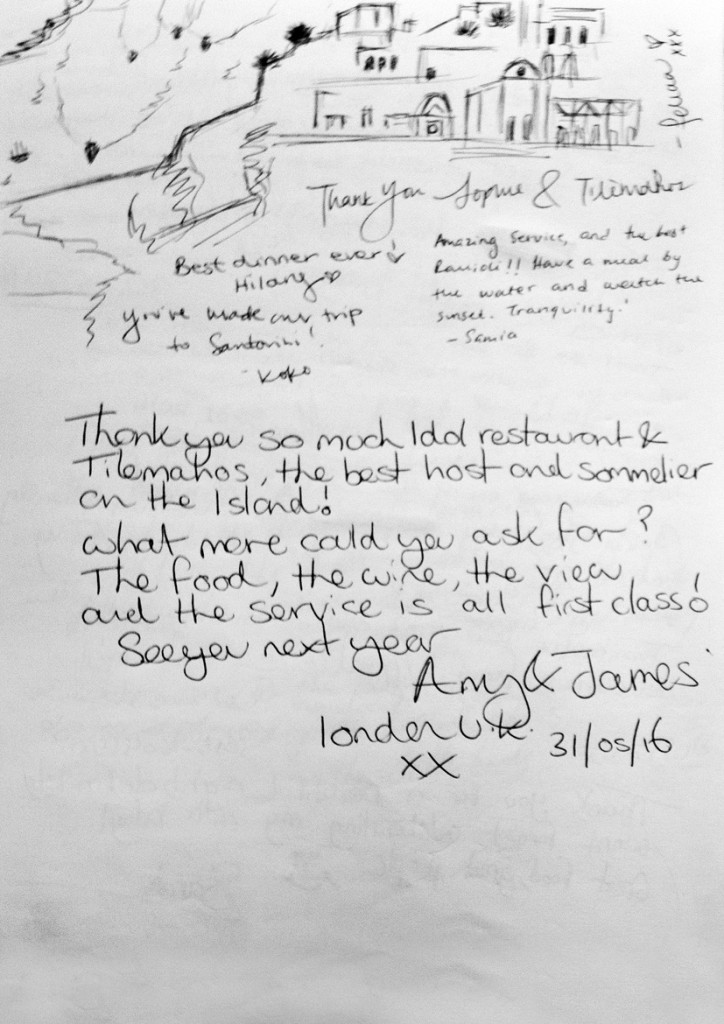 Thank you Sophie & Tilemahos
Best dinner ever!
Hilary
you've made our trip
to Santorini!
- Koko
Amazing service, and the best
Ravioli!! Have a meal by
the water and watch the
sunset. Tranquility!
- Samia
xxx
Thank you so much Idol restaurant &
Tilemahos, the best host and sommelier
on the Island!
What more could you ask for?
The food, the wine, the view,
and the service is all first class!
See you next year
Amy & James
London U.K. 31/05/16
XX